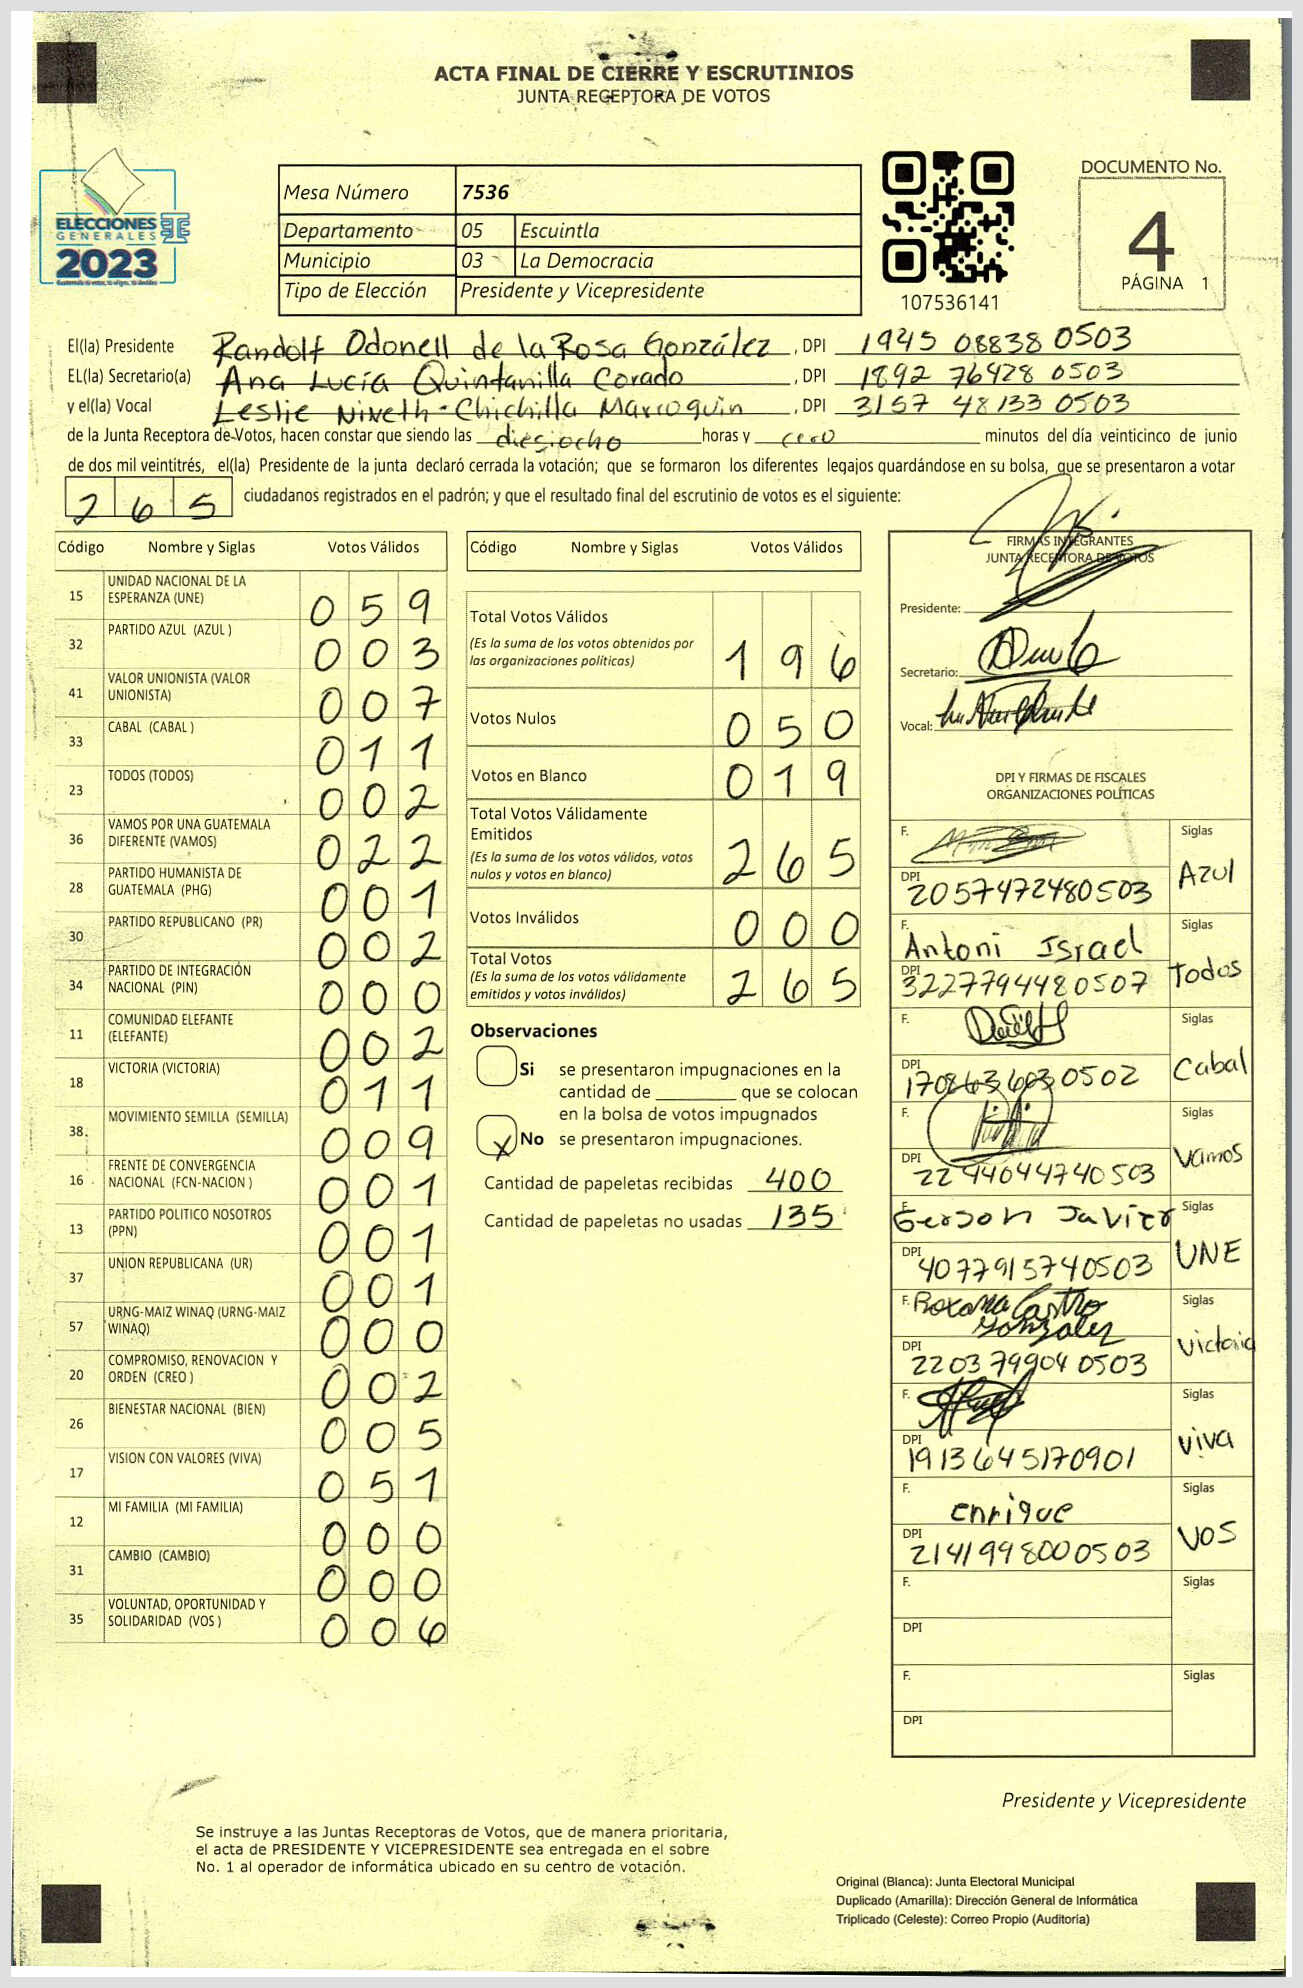 ACTA FINAL DE CIERRE Y ESCRUTINIOS
JUNTA RECEPTORA DE VOTOS
ELECCIONES
GENERALES
2023
Mesa Número 7536
Departamento 05 Escuintla
Municipio 03 La Democracia
Tipo de Elección Presidente y Vicepresidente
107536141
DOCUMENTO No.
4
PÁGINA 1
El(la) Presidente Randolf Odonell de la Rosa González, DPI 1945 08838 0503
EL(la) Secretario(a) Ana Lucía Quintanilla Corado, DPI 1892 76428 0503
y el(la) Vocal Leslie Niveth Chichilla Marroquin, DPI 3157 48133 0503
de la Junta Receptora de Votos, hacen constar que siendo las diesiocho horas y cero minutos del día veinticinco de junio
de dos mil veintitrés, el(la) Presidente de la junta declaró cerrada la votación; que se formaron los diferentes legajos quardándose en su bolsa, que se presentaron a votar
265 ciudadanos registrados en el padrón; y que el resultado final del escrutinio de votos es el siguiente:
Código Nombre y Siglas Votos Válidos
15 UNIDAD NACIONAL DE LA ESPERANZA (UNE) 059
32 PARTIDO AZUL (AZUL ) 003
41 VALOR UNIONISTA (VALOR UNIONISTA) 007
33 CABAL (CABAL ) 011
23 TODOS (TODOS) 002
36 VAMOS POR UNA GUATEMALA DIFERENTE (VAMOS) 022
28 PARTIDO HUMANISTA DE GUATEMALA (PHG) 001
30 PARTIDO REPUBLICANO (PR) 002
34 PARTIDO DE INTEGRACIÓN NACIONAL (PIN) 000
11 COMUNIDAD ELEFANTE (ELEFANTE) 002
18 VICTORIA (VICTORIA) 011
38 MOVIMIENTO SEMILLA (SEMILLA) 009
16 FRENTE DE CONVERGENCIA NACIONAL (FCN-NACION ) 001
13 PARTIDO POLITICO NOSOTROS (PPN) 001
37 UNION REPUBLICANA (UR) 001
57 URNG-MAIZ WINAQ (URNG-MAIZ WINAQ) 000
20 COMPROMISO, RENOVACION Y ORDEN (CREO ) 002
26 BIENESTAR NACIONAL (BIEN) 005
17 VISION CON VALORES (VIVA) 051
12 MI FAMILIA (MI FAMILIA) 000
31 CAMBIO (CAMBIO) 000
35 VOLUNTAD, OPORTUNIDAD Y SOLIDARIDAD (VOS ) 006
Código Nombre y Siglas Votos Válidos
Total Votos Válidos
(Es la suma de los votos obtenidos por
las organizaciones políticas) 196
Votos Nulos 050
Votos en Blanco 019
Total Votos Válidamente
Emitidos
(Es la suma de los votos válidos, votos
nulos y votos en blanco) 265
Votos Inválidos 000
Total Votos
(Es la suma de los votos válidamente
emitidos y votos inválidos) 265
Observaciones
Si se presentaron impugnaciones en la
cantidad de ________ que se colocan
en la bolsa de votos impugnados
X No se presentaron impugnaciones.
Cantidad de papeletas recibidas 400
Cantidad de papeletas no usadas 135
FIRMAS INTEGRANTES
JUNTA RECEPTORA DE VOTOS
Presidente:
Secretario:
Vocal:
DPI Y FIRMAS DE FISCALES
ORGANIZACIONES POLÍTICAS
F. Siglas
DPI 2057472480503 Azul
F. Antoni Israel Siglas
DPI 3227794480507 Todos
F. Siglas
DPI 0502 Cabal
F. Siglas
DPI 2244044740503 Vamos
F. Gerson Javier Siglas
DPI 4077915740503 UNE
F. Roxana Castro Gonzalez Siglas
DPI 2203799040503 victoria
F. Siglas
DPI 1913645170901 viva
F. Enrique Siglas
DPI 2141998000503 VOS
F. Siglas
DPI
F. Siglas
DPI
Presidente y Vicepresidente
Se instruye a las Juntas Receptoras de Votos, que de manera prioritaria,
el acta de PRESIDENTE Y VICEPRESIDENTE sea entregada en el sobre
No. 1 al operador de informática ubicado en su centro de votación.
Original (Blanca): Junta Electoral Municipal
Duplicado (Amarilla): Dirección General de Informática
Triplicado (Celeste): Correo Propio (Auditoría)